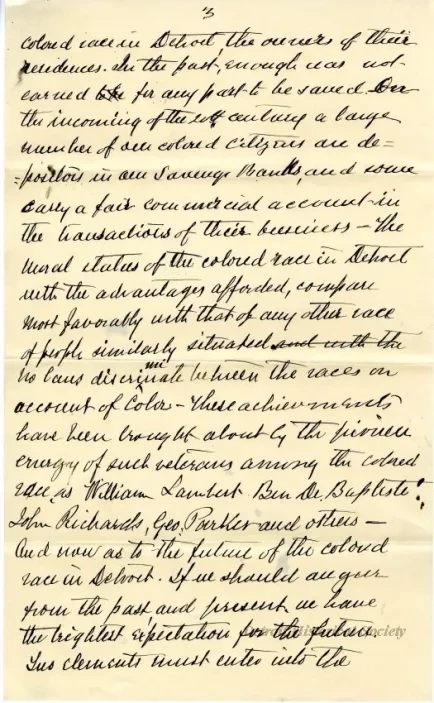 3
colored race in Detroit, the owners of their
residences. In the past, enough was not
earned for any part to be saved. On
the incoming of the 20th century a large
number of our colored citizens are de-
-positors in our Savings Banks, and some
carry a fair commercial account in
the transactions of their business - The
moral status of the colored race in Detroit
with the advantages afforded, compare
most favorably with that of any other race
of people similarly situated and with the
no laws discriminate between the races on
account of Color - These achievements
have been brought about by the pioneer
energy of such veterans among the colored
race, as William Lambert Ben De, Baptiste,
John Richards, Geo, Parker and others -
And now as to the future of the colored
race in Detroit. If we should augur
from the past and present we have
the brightest expectation for the future
Two elements must enter into the
Society